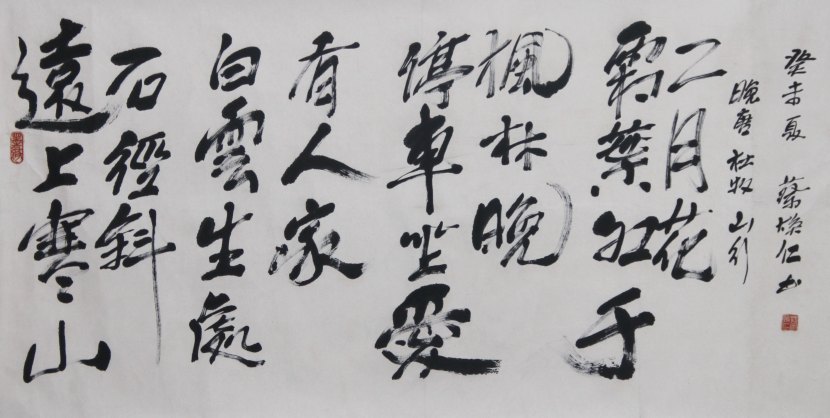 遠上寒山
石徑斜
白雲生處
有人家
停車坐愛
楓林晚
霜葉紅于
二月花
晚唐 杜牧 山行
癸未夏 蔡煥仁书